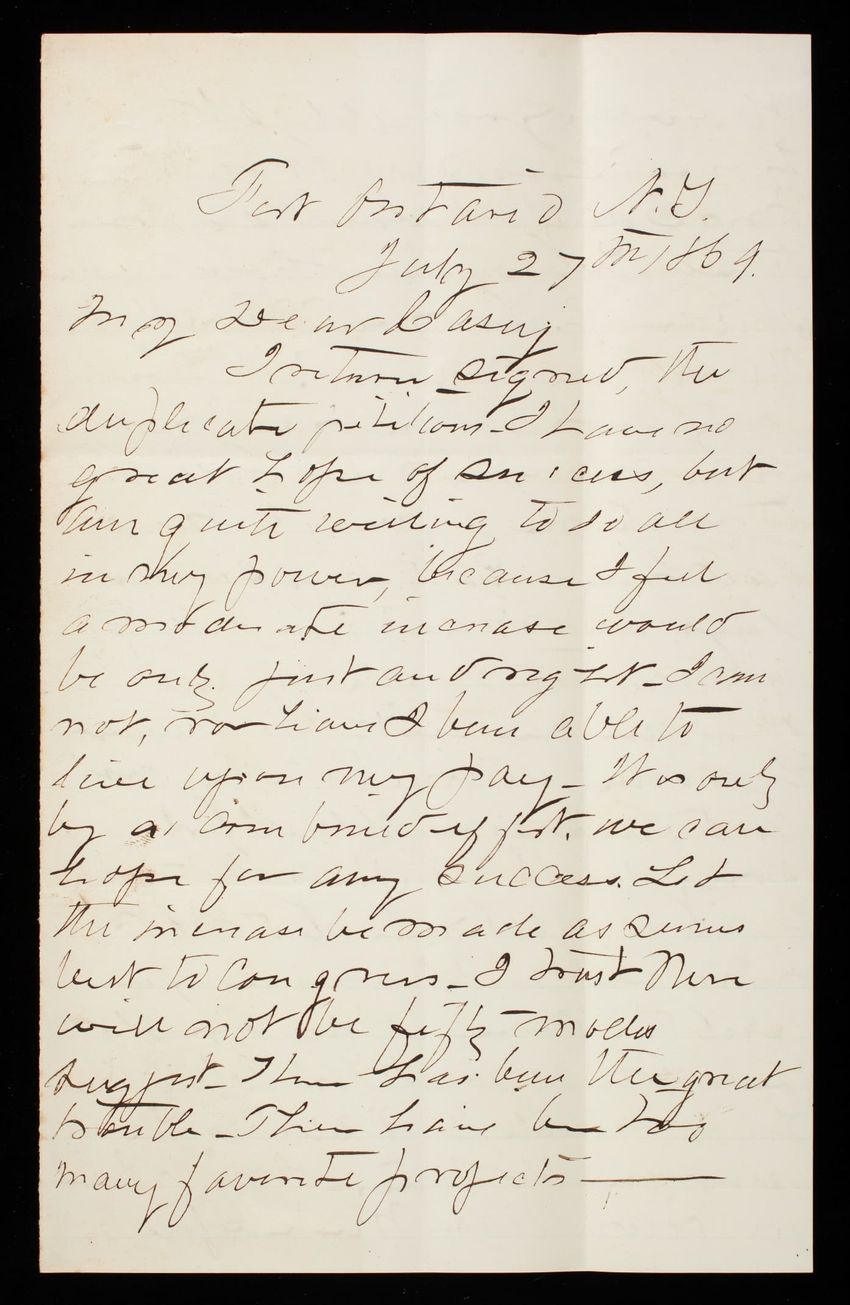 Fort Ontario N.Y.
July 27th 1869.
My Dear Casey
I return signed, the
duplicate petitions - I have no
great hope of success, but
am quite willing to do all
in my power, because I feel
a moderate increase would
be only just and right - I am
not, nor have I been able to
live upon my pay - It is only
by a combined effort. we can
hope for any success. Let
the increase be made as seems
best to Congress - I trust there
will not be fifty modes
suggest - There has been the great
trouble - There have been too
many favorite projects -